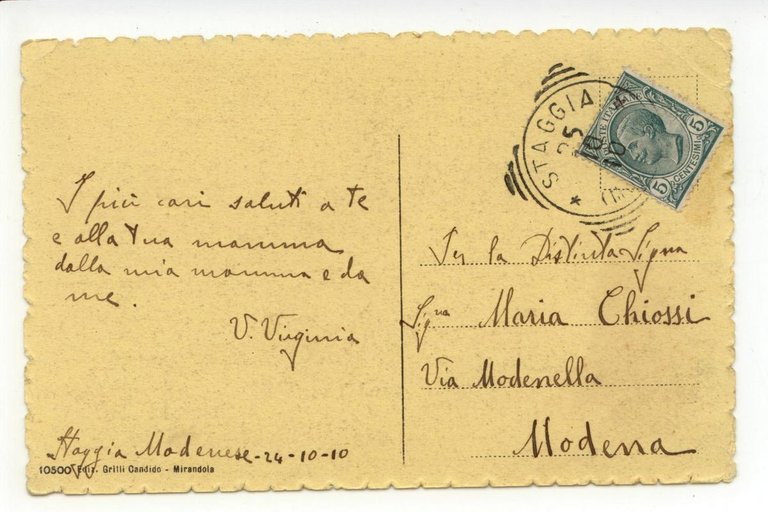 I più cari saluti a te
e alla tua mamma
dalla mia mamma e da
me.
V. Virginia
Staggia Modenese - 24-10-10
10500 Edit. Grilli Candido - Mirandola
STAGGIA
25
10
10
POSTE ITALIANE
CENTESIMI 5
5
Per la Distinta Sigra
Sigra Maria Chiossi
Via Modenella
Modena